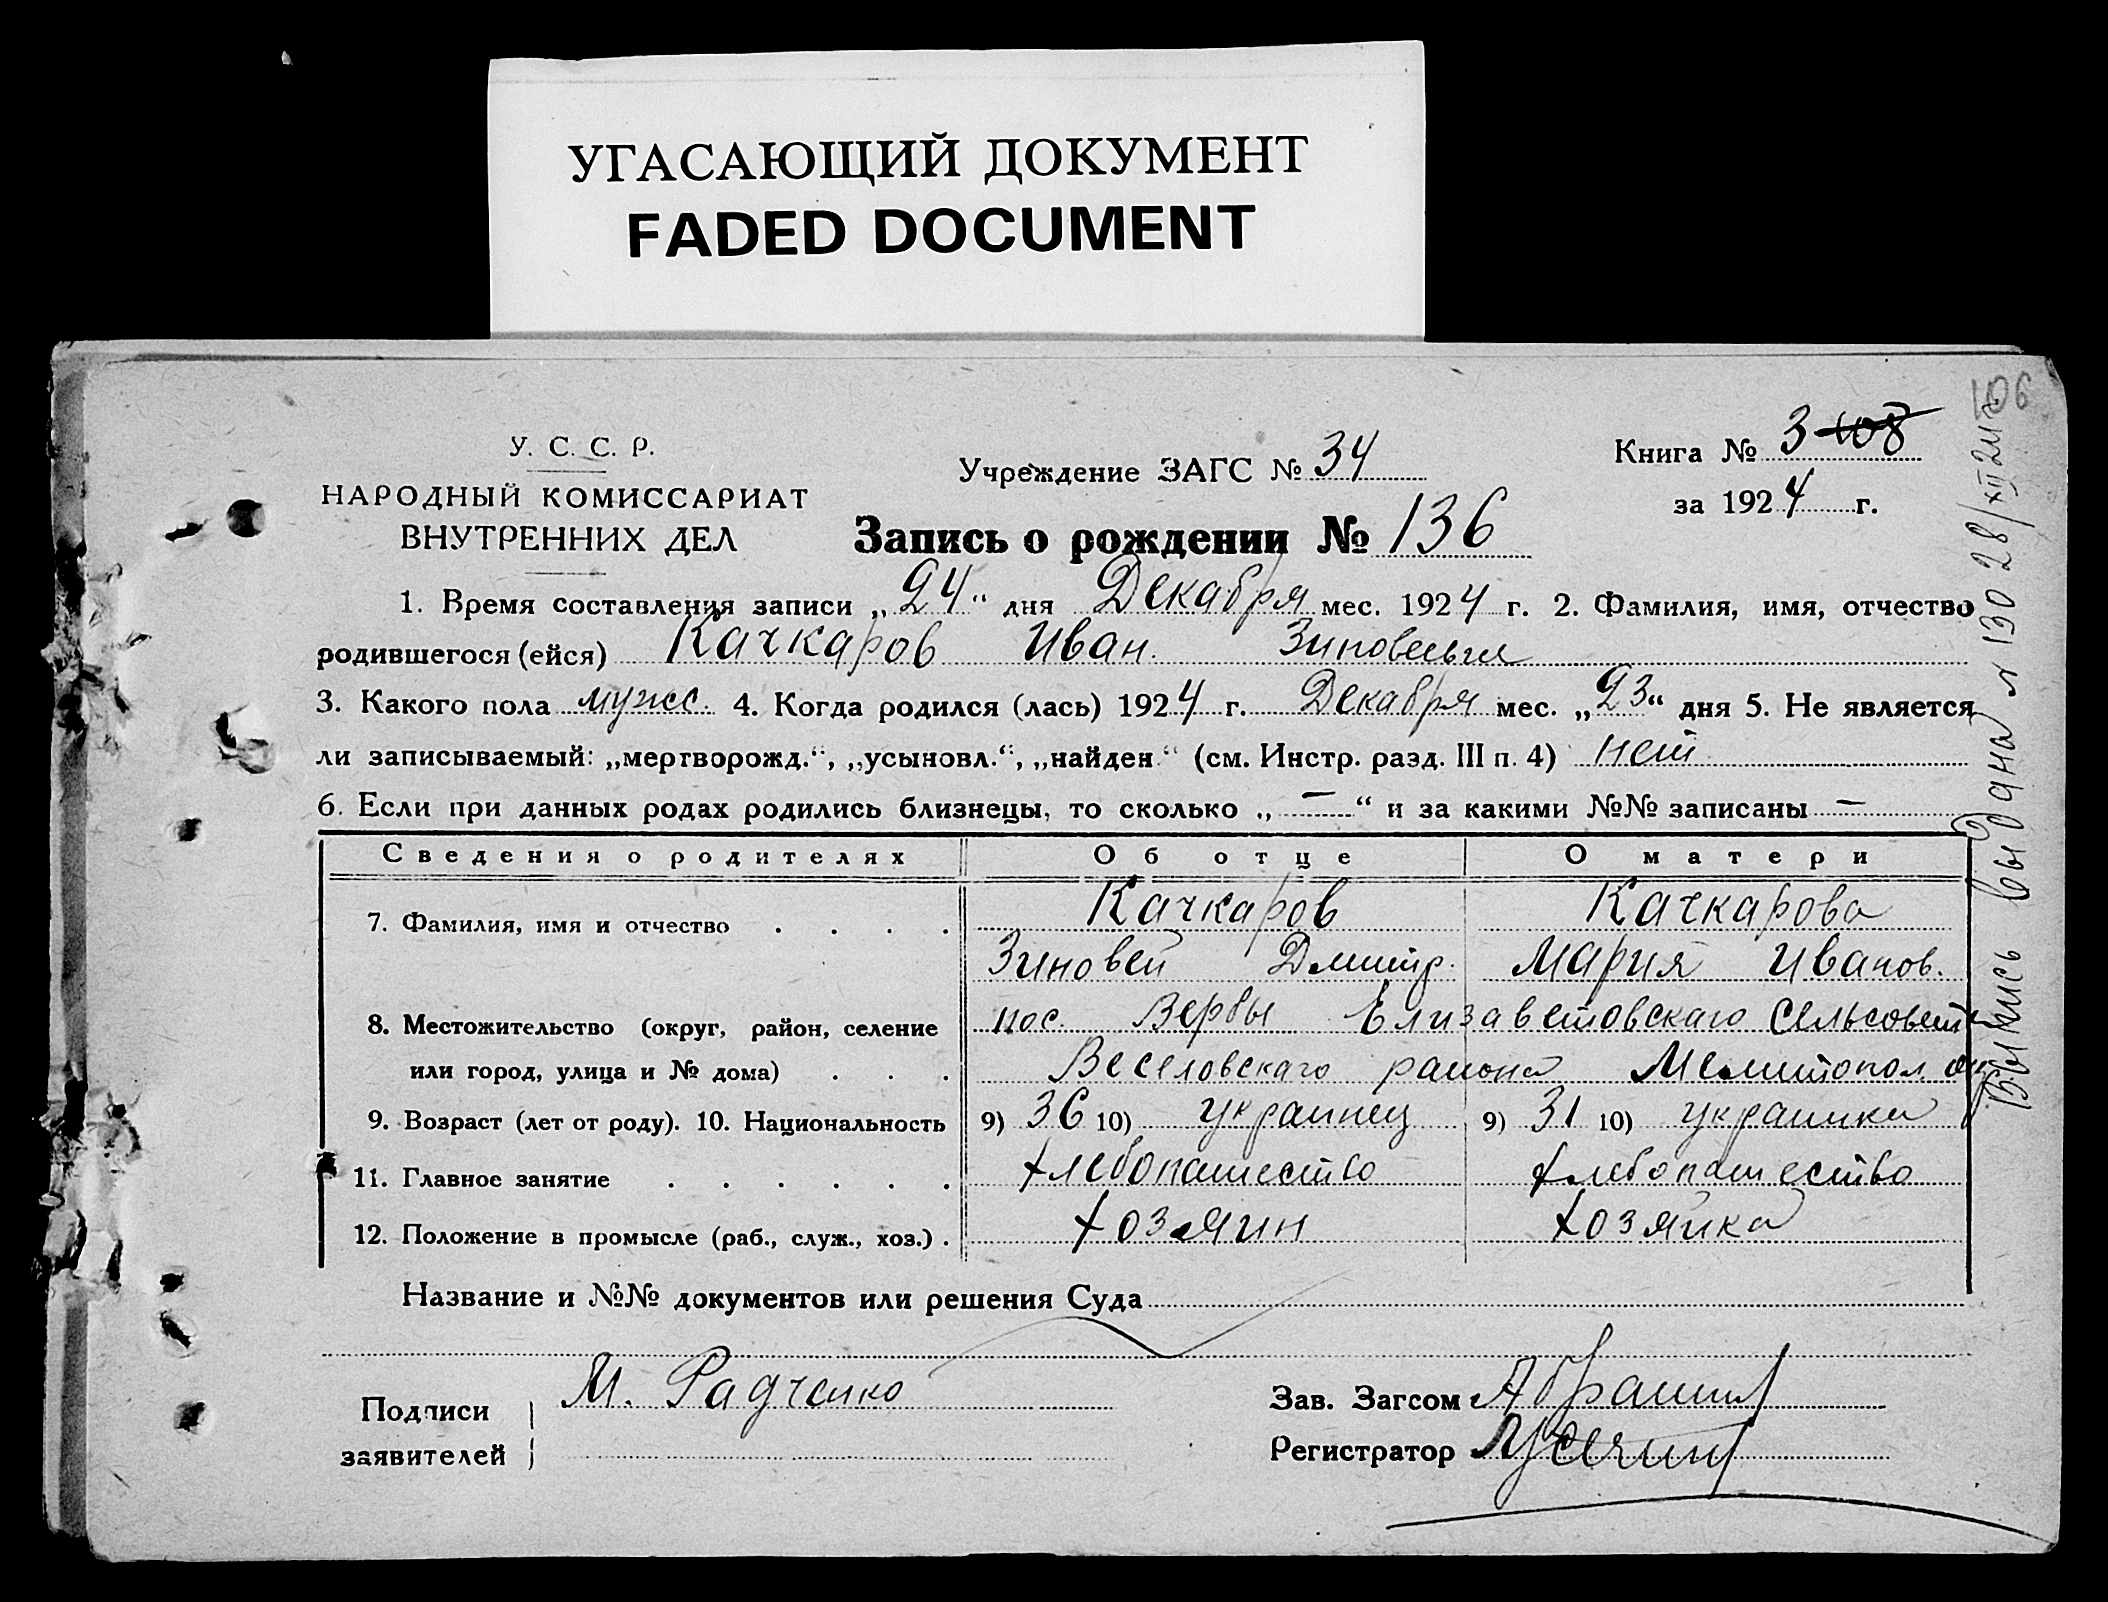 УГАСАЮЩИЙ ДОКУМЕНТ
FADED DOCUMENT
106
У. С. С. Р.
НАРОДНЫЙ КОМИССАРИАТ
ВНУТРЕННИХ ДЕЛ
Учреждение ЗАГС № 34
Книга № 3 108
за 1924 г.
Запись о рождении № 136
1. Время составления записи „24“ дня Декабря мес. 1924 г. 2. Фамилия, имя, отчество
родившегося (ейся) Качкаров Иван Зиновеевич
3. Какого пола мужс. 4. Когда родился (лась) 1924 г. Декабря мес. „23“ дня 5. Не является
ли записываемый: „мертворожд.“, „усыновл.“, „найден.“ (см. Инстр. разд. III п. 4) нет
6. Если при данных родах родились близнецы, то сколько „—“ и за какими №№ записаны —
Сведения о родителях Об отце О матери
7. Фамилия, имя и отчество . . . . Качкаров Качкарова
Зиновей Дмитр. Мария Иванов.
8. Местожительство (округ, район, селение пос. Вербы Елизаветовскаго сельсовета
или город, улица и № дома) . . . Веселовскаго района Мелитопол. окр
9. Возраст (лет от роду). 10. Национальность 9) 36 10) украинец 9) 31 10) украинка
11. Главное занятие . . . . . . Хлебопашество Хлебопашество
12. Положение в промысле (раб., служ., хоз.) . Хозяин Хозяйка
Название и №№ документов или решения Суда
Подписи
заявителей
М. Радченко
Зав. Загсом
Регистратор
Выпись выдана № 130 28/XII